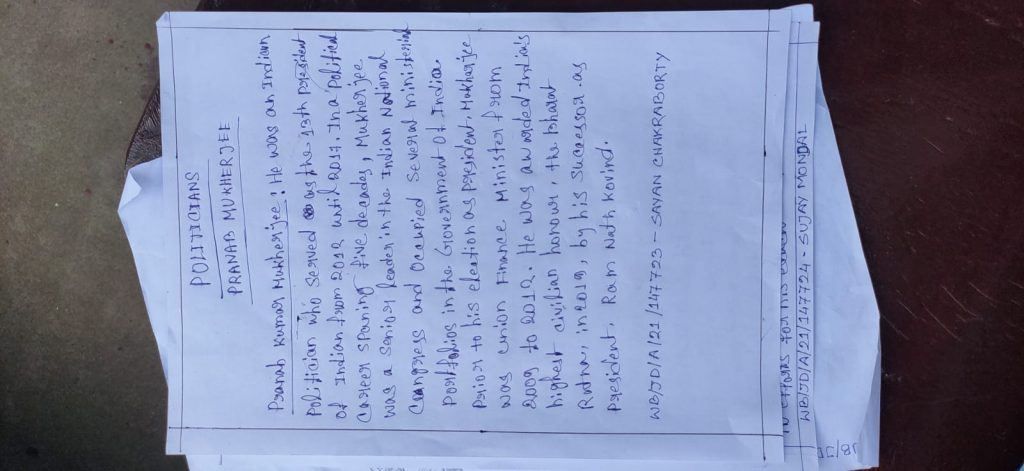 POLITICIANS
PRANAB MUKHERJEE
Pranab Kumar Mukherjee: He was an Indian
Politician who Served as the 13th president
of Indian from 2012 until 2017. In a Political
Career Spaning five decades, Mukherjee
was a Senior leader in the Indian National
Congress and Occupied Several ministerial
Portfolios in the Government of India.
Prior to his election as president, Mukharjee
was Union Finance Minister from
2009 to 2012. He was awarded India's
highest civilian honour, the Bharat
Ratna, in 2019, by his Successor as
president. Ram Nath Kovind.
WB/JD/A/21/147723 - SAYAN CHAKRABORTY
efforts for his
WB/JD/A/21/147724 - SUJAY MONDAL